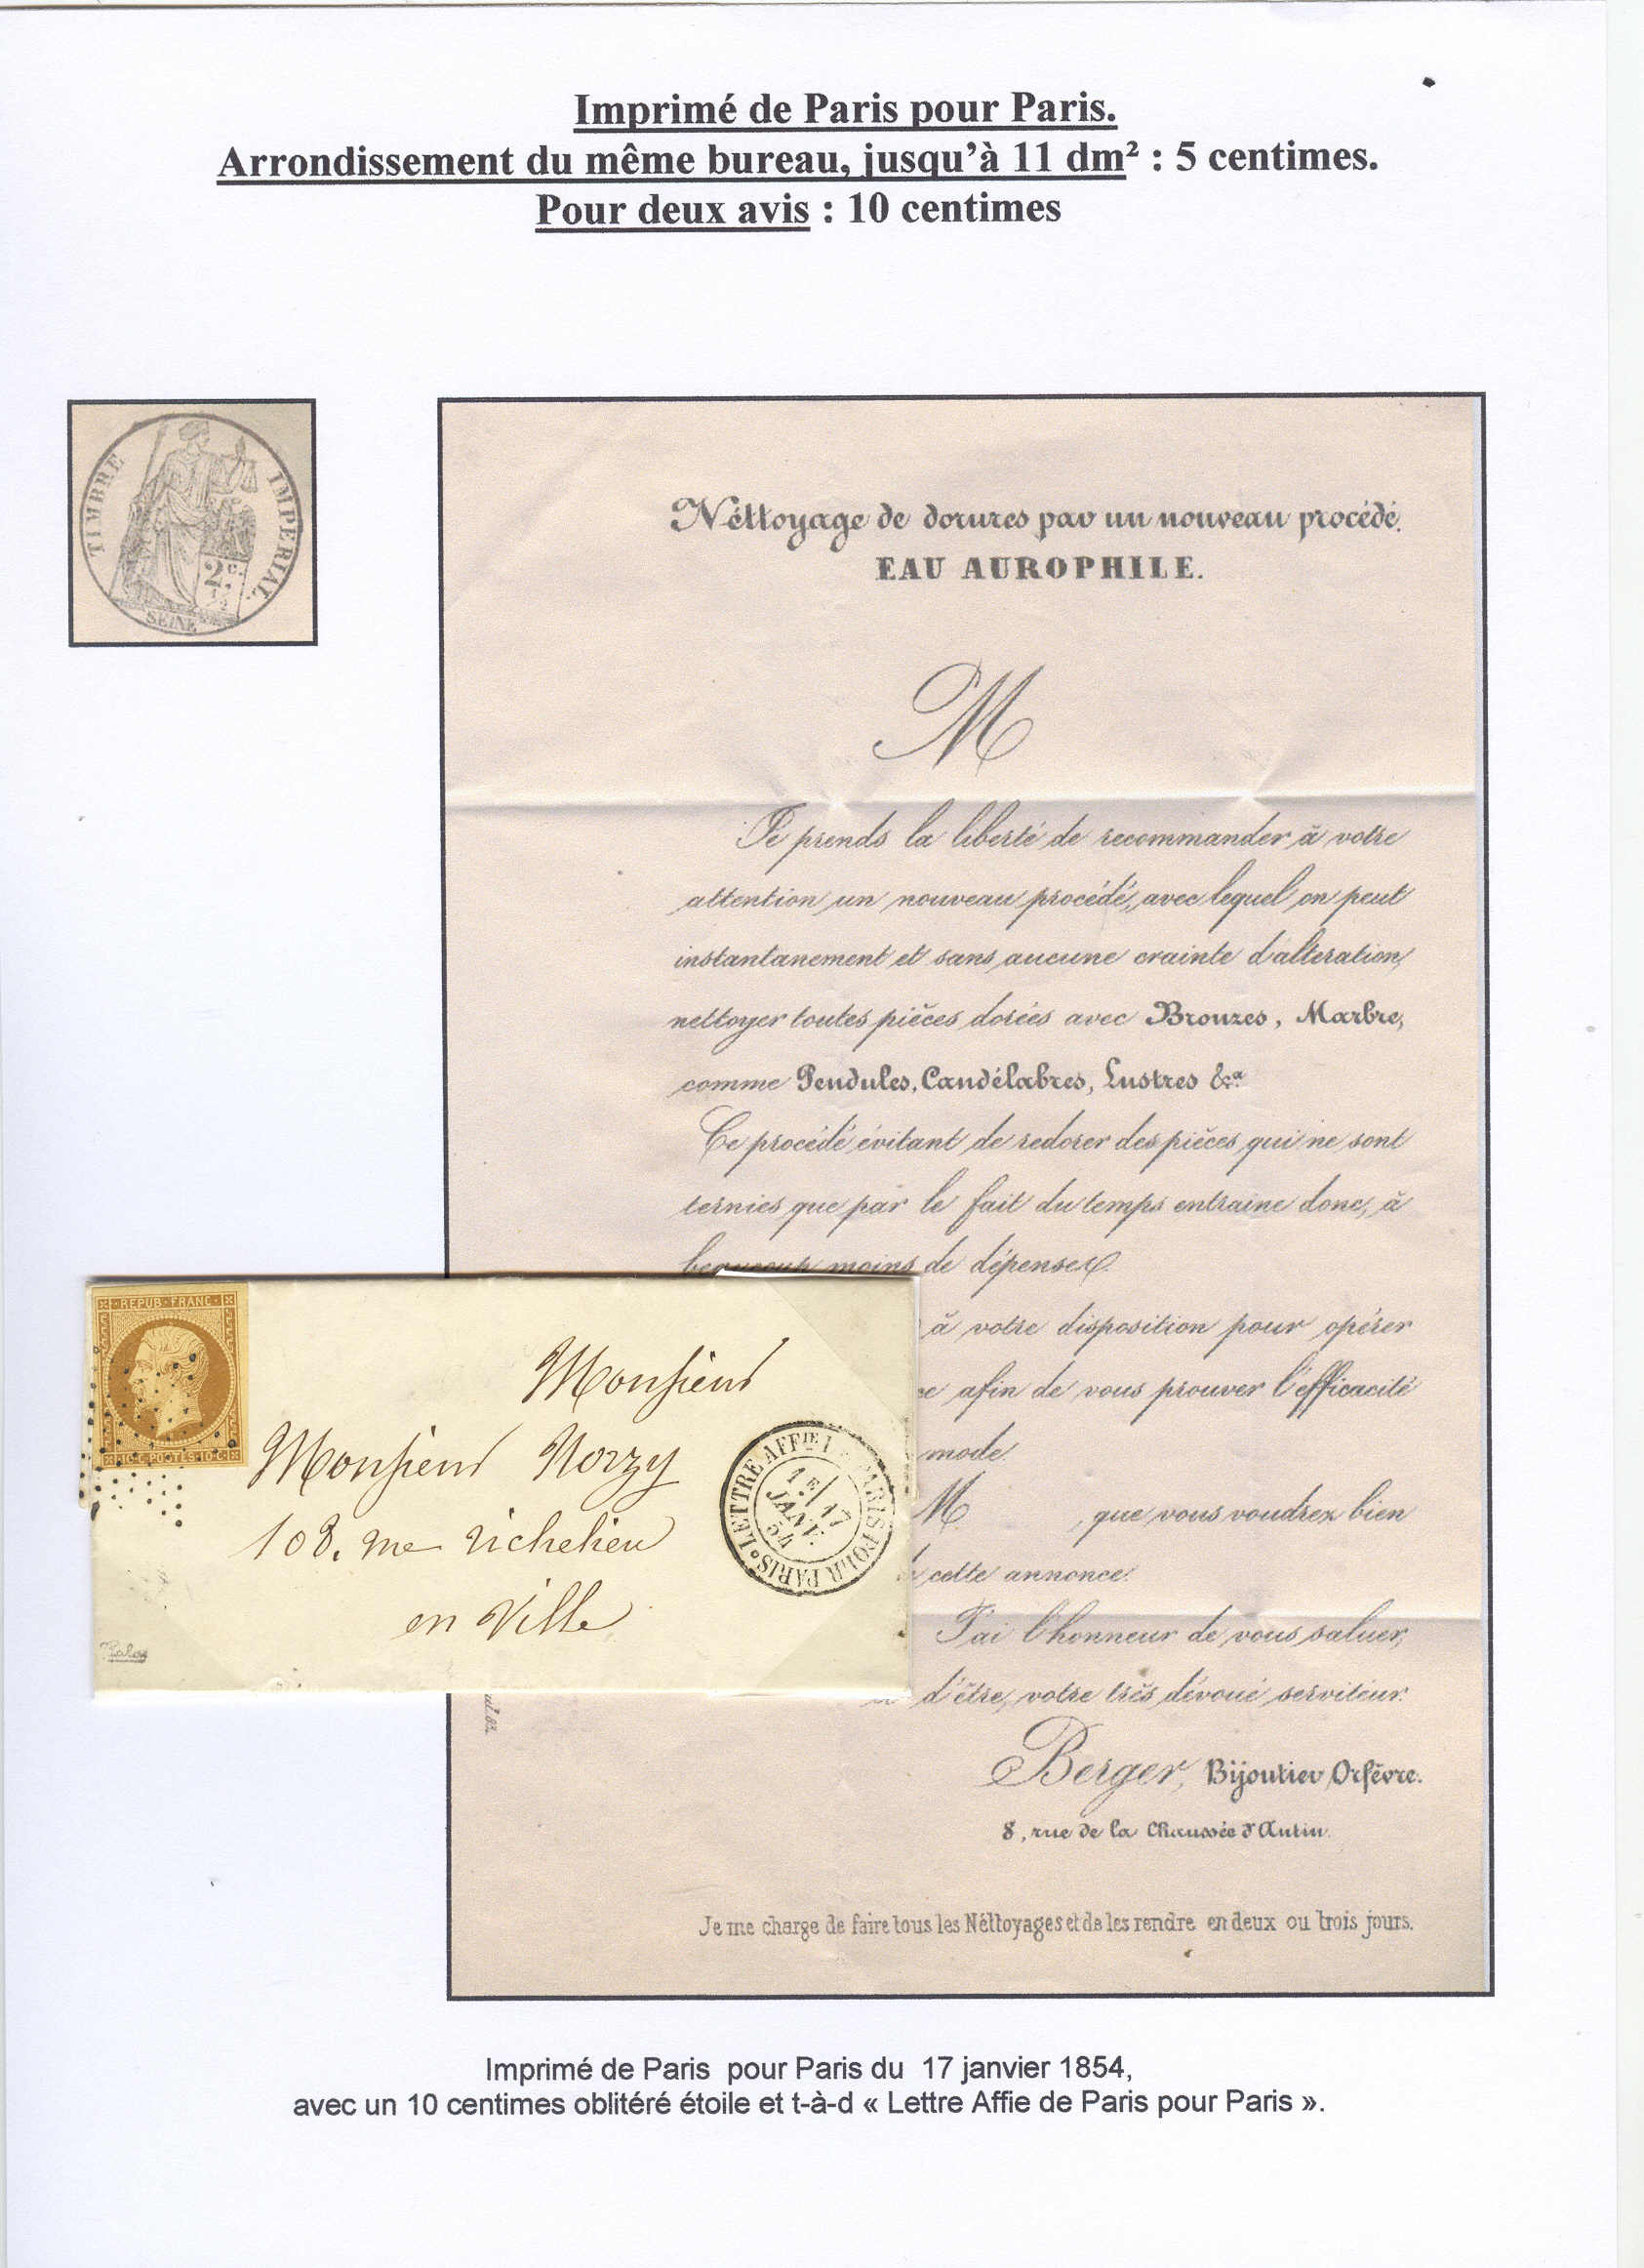 Imprimé de Paris pour Paris.
Arrondissement du même bureau, jusqu'à 11 dm² : 5 centimes.
Pour deux avis : 10 centimes
TIMBRE IMPERIAL
2 c. 1/2
SEINE
Néttoyage de dorures par un nouveau procédé.
EAU AUROPHILE.
M
Je prends la liberté de recommander à votre
attention un nouveau procédé, avec lequel on peut
instantanement et sans aucune crainte d'alteration,
nettoyer toutes pièces dorées avec Bronzes, Marbre,
comme Pendules, Candélabres, Lustres &ca
Ce procédé évitant de redorer des pièces qui ne sont
ternies que par le fait du temps entraine donc, à
beaucoup moins de dépenses.
à votre disposition pour opérer
afin de vous prouver l'efficacité
mode.
M , que vous voudrez bien
cette annonce.
J'ai l'honneur de vous saluer,
d'être, votre très dévoué serviteur.
Berger, Bijoutier Orfèvre.
8, rue de la Chaussée d'Antin.
Je me charge de faire tous les Néttoyages et de les rendre en deux ou trois jours.
REPUB. FRANC.
10.C. POSTES.10.C.
Monsieur
Monsieur Norzy
108. rue richelieu
en Ville
LETTRE AFFIE PARIS POUR PARIS
1E/ 17
JANV.
54
Imprimé de Paris pour Paris du 17 janvier 1854,
avec un 10 centimes oblitéré étoile et t-à-d « Lettre Affie de Paris pour Paris ».